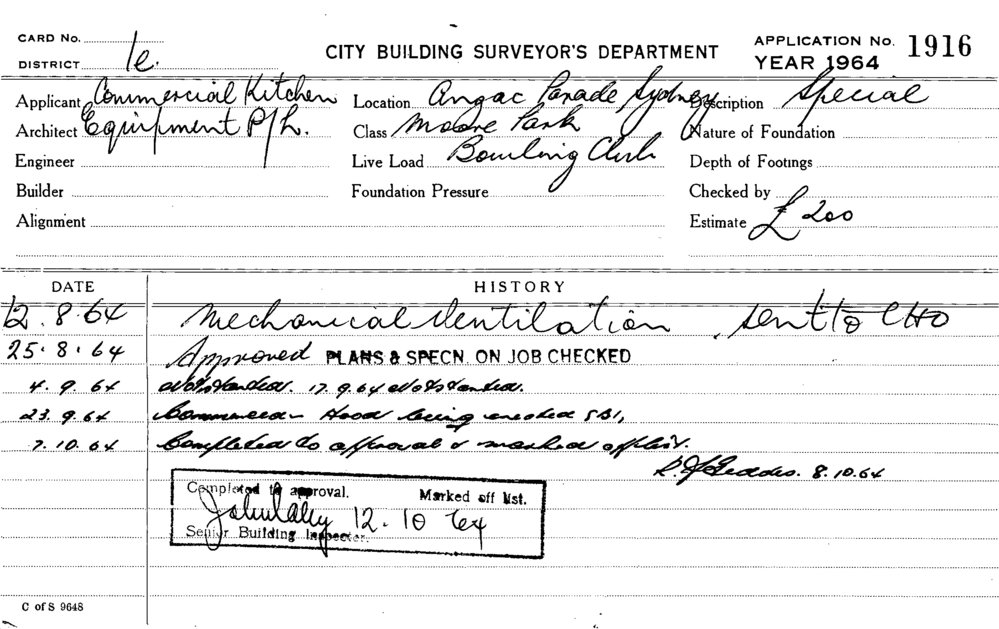 CARD No.
DISTRICT 1e.
CITY BUILDING SURVEYOR'S DEPARTMENT
APPLICATION No. 1916
YEAR 1964
Applicant Commercial Kitchen
Architect Equipment P/L.
Engineer
Builder
Alignment
Location Anzac Parade Sydney
Class Moore Park
Live Load Bowling Club
Foundation Pressure
Description Special
Nature of Foundation
Depth of Footings
Checked by
Estimate £ 200
DATE HISTORY
12.8.64 Mechanical Ventilation sent to CHO
25.8.64 Approved PLANS & SPECN. ON JOB CHECKED
4.9.64 Not started. 17.9.64 Not started.
23.9.64 Commenced - Hood being erected
7.10.64 Completed to approval & marked off list.
8.10.64
Completed to approval. Marked off list.
12.10 64
Senior Building Inspector.
C of S 9648